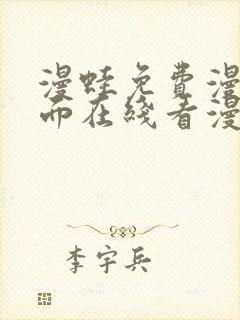 漫蛙免费漫
而在线看漫
李宇兵